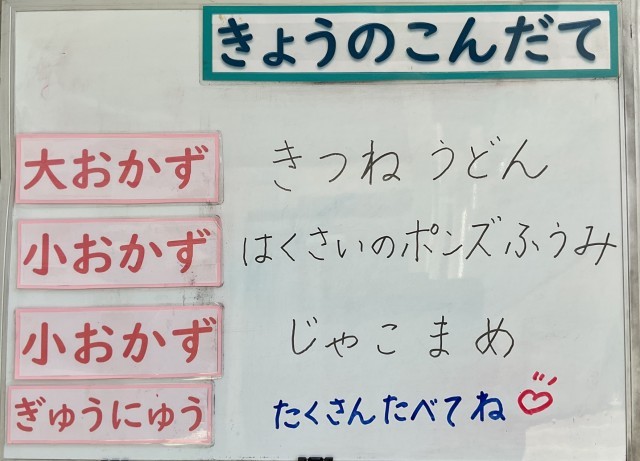 きょうのこんだて
大おかず きつねうどん
小おかず はくさいのポンズふうみ
小おかず じゃこまめ
ぎゅうにゅう たくさんたべてね